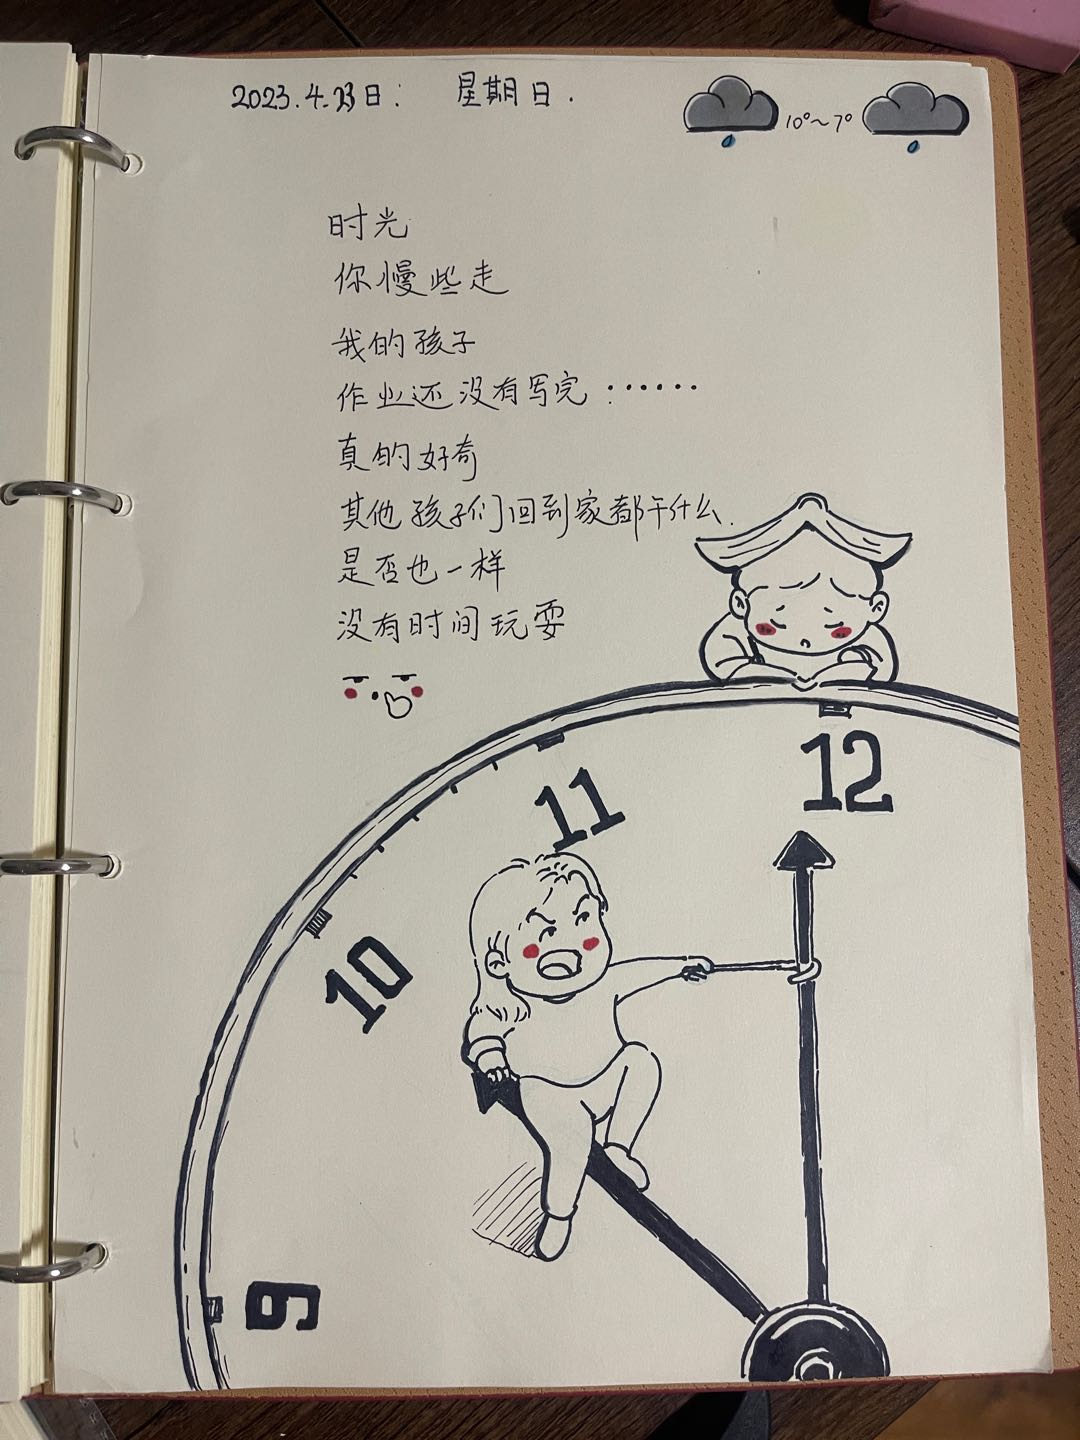 2023.4.23日: 星期日.
10°~7°
时光
你慢些走
我的孩子
作业还没有写完:······
真的好奇
其他孩子们回到家都干什么.
是否也一样
没有时间玩耍
12
11
10
9